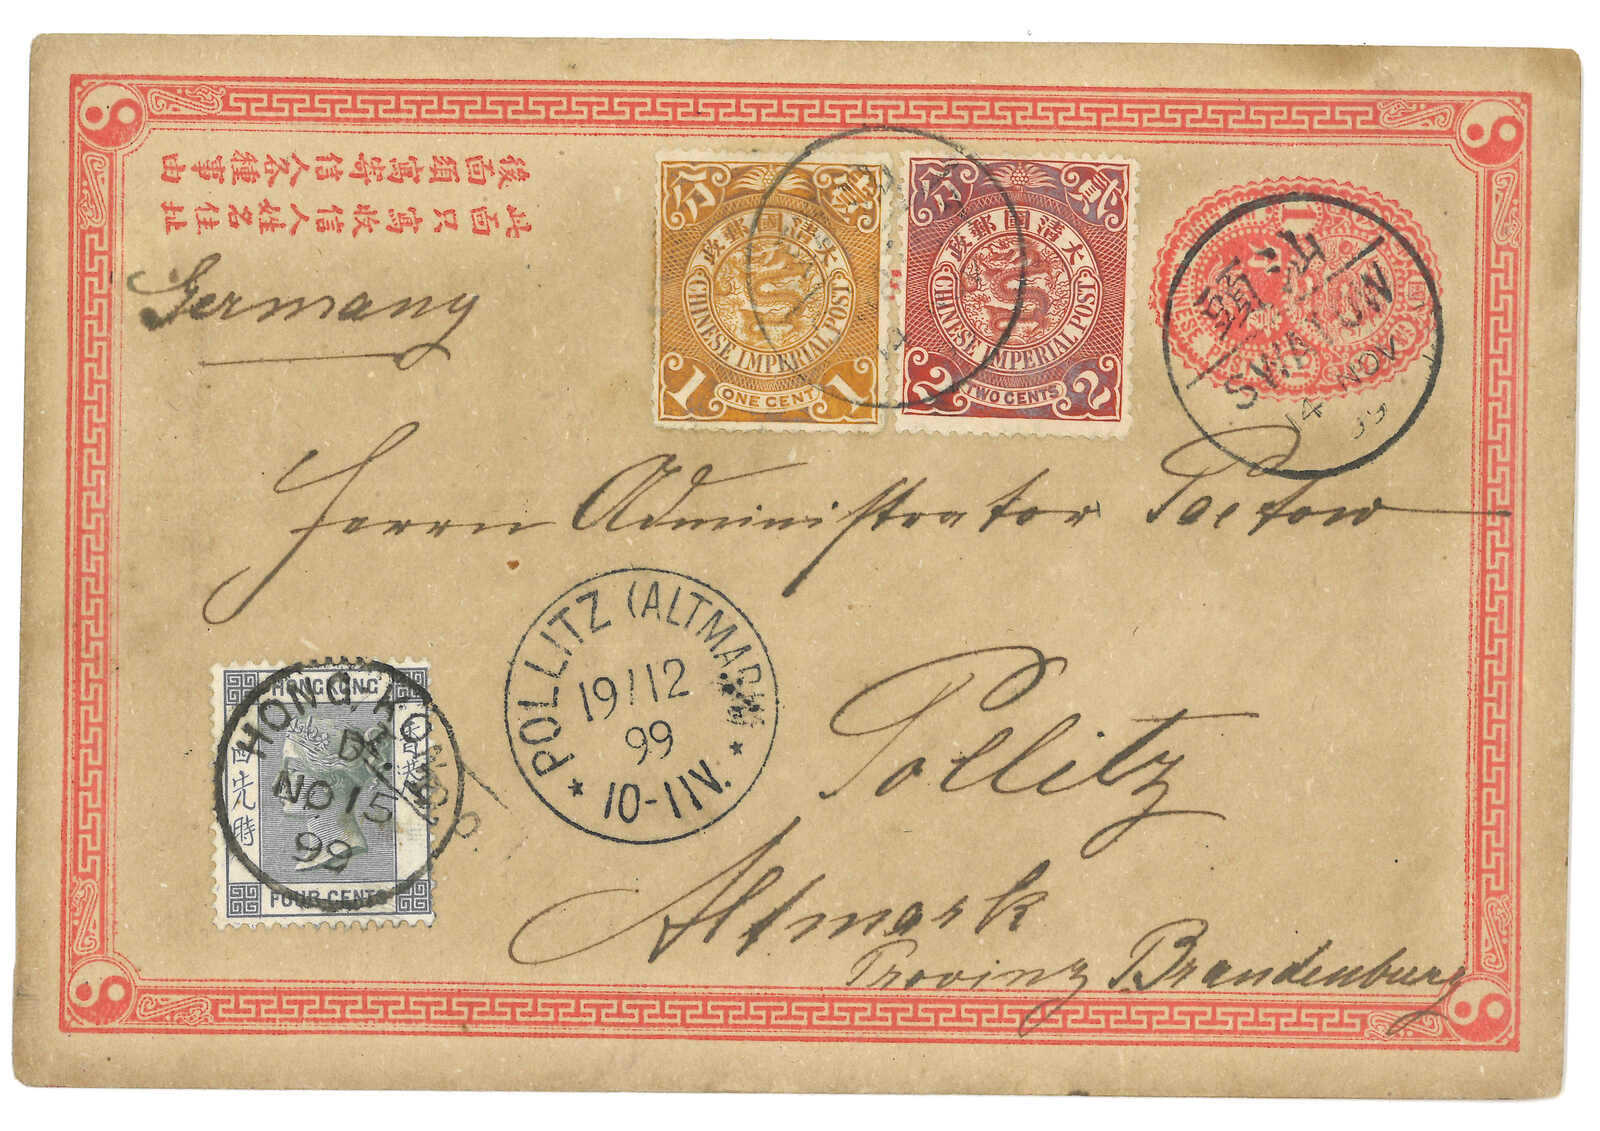 後面須寫寄信人各種事由
此面只寫收信人姓名住址
Germany
分 壹
大清國郵政
CHINESE IMPERIAL POST
1 ONE CENT 1
分 貳
大清國郵政
CHINESE IMPERIAL POST
2 TWO CENTS 2
1
CHINESE
汕頭
SWATOW
14 NOV 99
Herrn Administrator Paetow
POLLITZ (ALTMARK)
19/12
99
10-11V.
Pollitz
Altmark
Provinz Brandenburg
HONGKONG
香港
四先時
FOUR CENTS
HONG KONG
NO 15
99